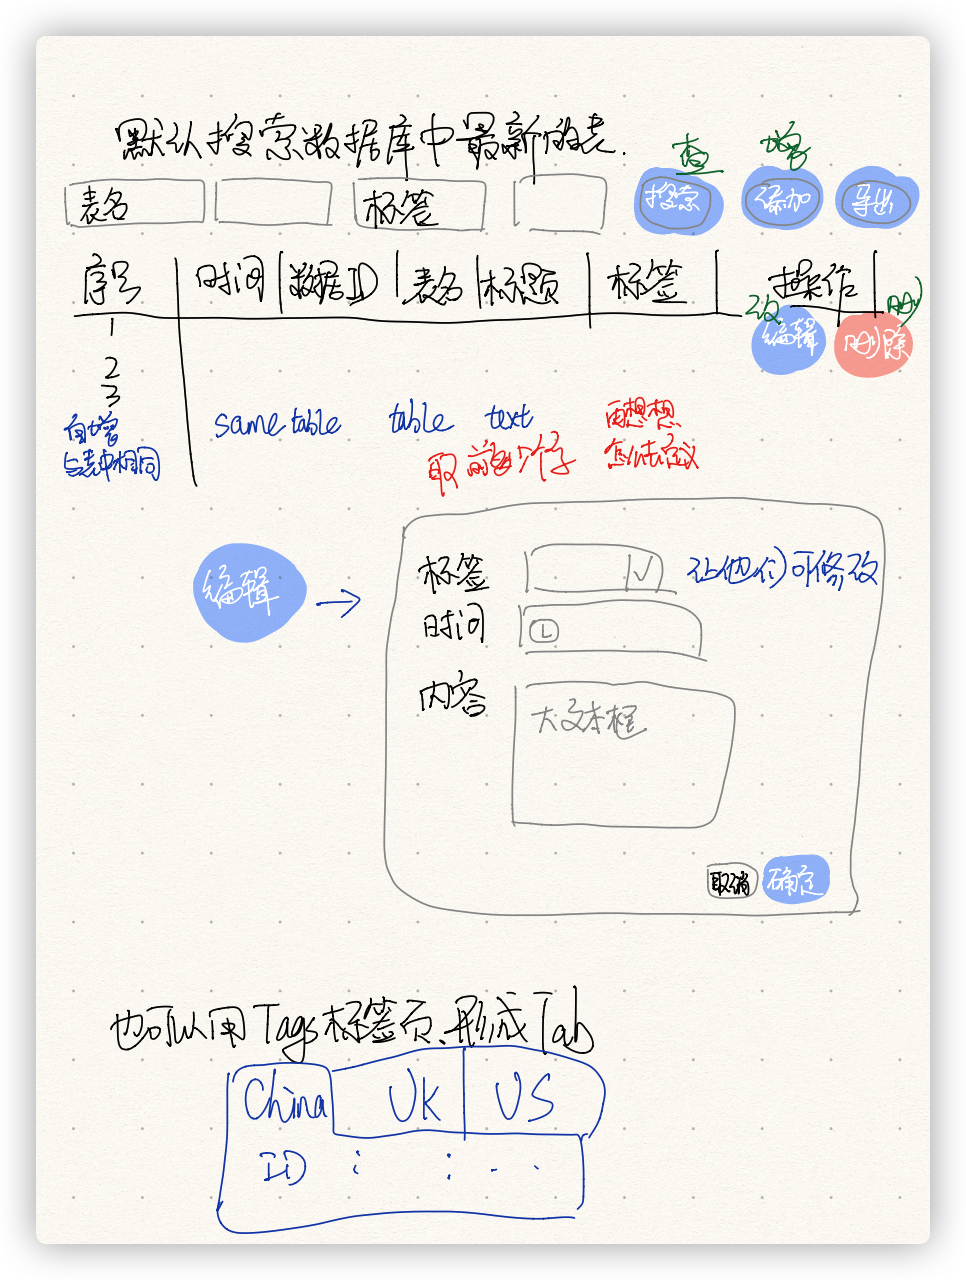 默认搜索数据库中最新的表.
查 增
表名 标签 搜索 添加 导出
序号 时间 数据ID 表名 标题 标签 操作
改 删
1 编辑 删除
2
3
自增 same table table text 再想想
与表中相同 取前 个字 怎么去定义
编辑 → 标签 让他们可修改
时间
内容
大文本框
取消 确定
也可以用Tags标签页、形成Tab
China UK US
ID